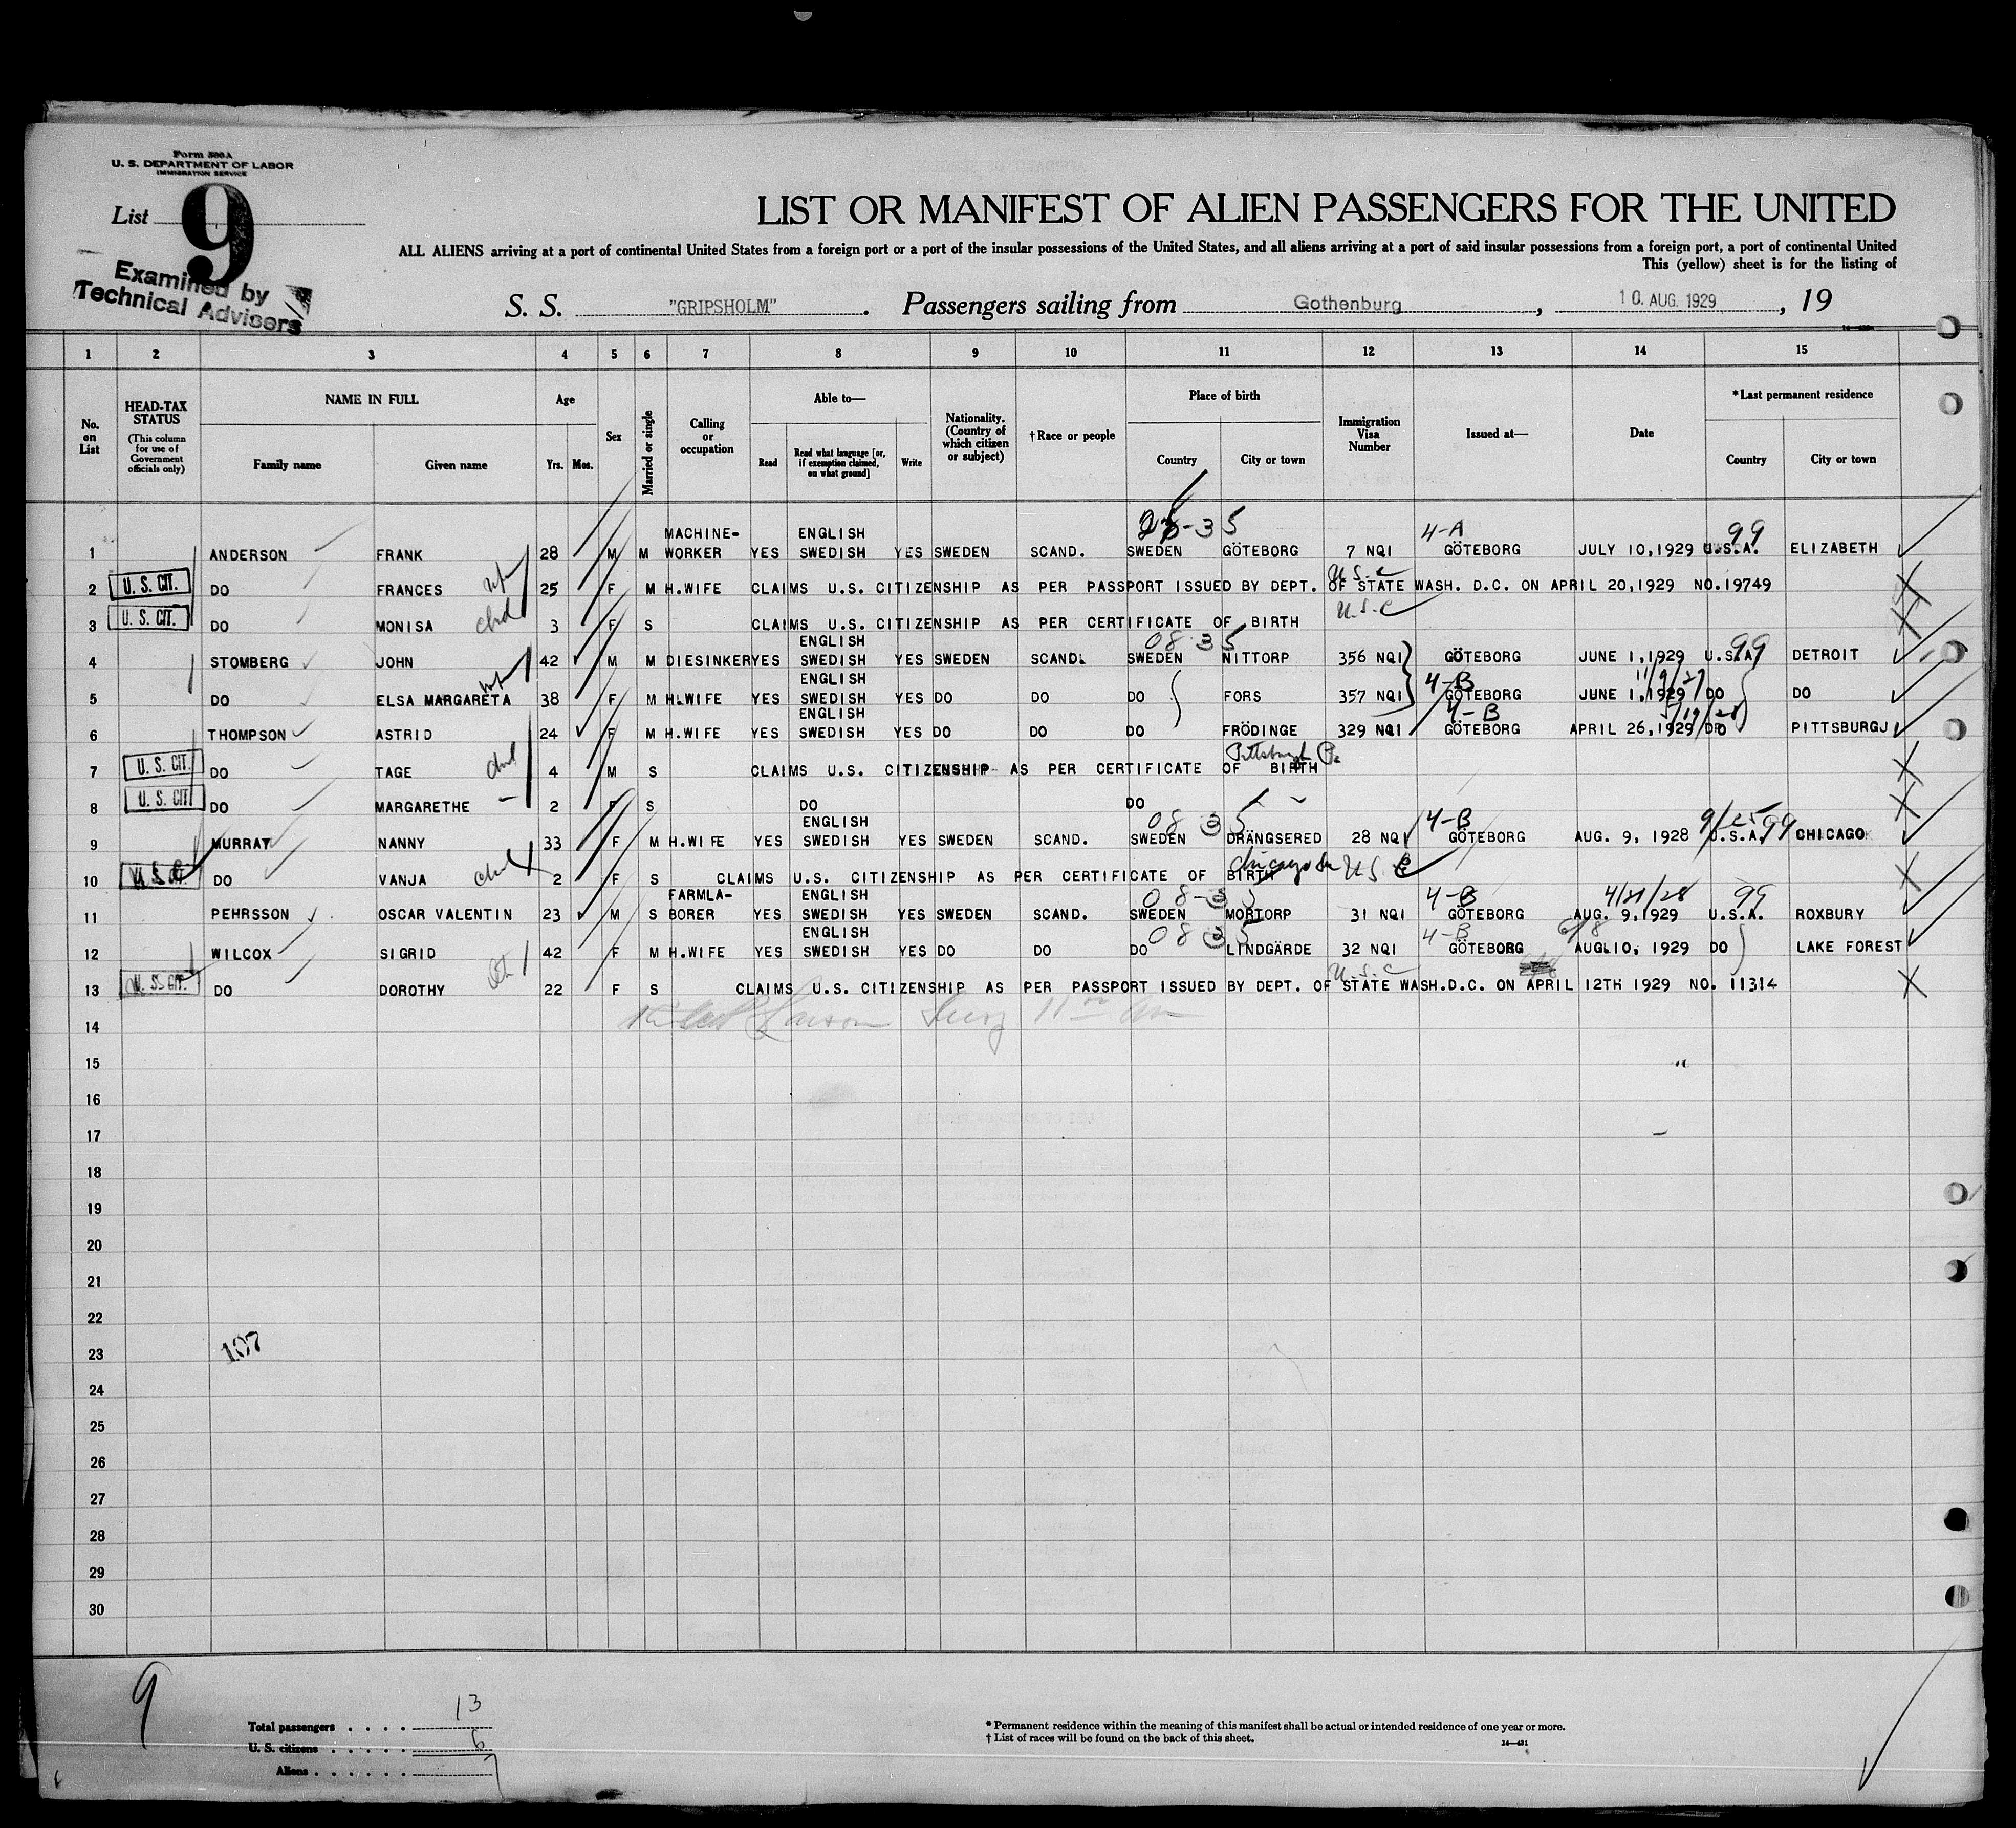 Form 500A
U. S. DEPARTMENT OF LABOR
IMMIGRATION SERVICE
List 9
Examined by
Technical Advisers
LIST OR MANIFEST OF ALIEN PASSENGERS FOR THE UNITED
ALL ALIENS arriving at a port of continental United States from a foreign port or a port of the insular possessions of the United States, and all aliens arriving at a port of said insular possessions from a foreign port, a port of continental United
This (yellow) sheet is for the listing of
S. S. "GRIPSHOLM". Passengers sailing from Gothenburg, 10. AUG. 1929, 19
1 2 3 4 5 6 7 8 9 10 11 12 13 14 15
No. on List
HEAD-TAX STATUS
(This column for use of Government officials only)
NAME IN FULL
Family name
Given name
Age
Yrs. Mos.
Sex
Married or single
Calling or occupation
Able to—
Read
Read what language [or, if exemption claimed, on what ground]
Write
Nationality. (Country of which citizen or subject)
† Race or people
Place of birth
Country
City or town
Immigration Visa Number
Issued at—
Date
*Last permanent residence
Country
City or town
MACHINE- ENGLISH 4-A 99
1 ANDERSON FRANK 28 M M WORKER YES SWEDISH YES SWEDEN SCAND. SWEDEN GÖTEBORG 7 NQI GÖTEBORG JULY 10,1929 U.S.A. ELIZABETH
U.S.C
2 U. S. CIT. DO FRANCES 25 F M H.WIFE CLAIMS U.S. CITIZENSHIP AS PER PASSPORT ISSUED BY DEPT. OF STATE WASH. D.C. ON APRIL 20,1929 NO.19749
3 U. S. CIT. DO MONISA chd 3 F S CLAIMS U.S. CITIZENSHIP AS PER CERTIFICATE OF BIRTH U.S.C
ENGLISH 08-35 99
4 STOMBERG JOHN 42 M M DIESINKER YES SWEDISH YES SWEDEN SCAND. SWEDEN NITTORP 356 NQI GÖTEBORG JUNE 1,1929 U.S.A. DETROIT
ENGLISH 4-B 11/9/27
5 DO ELSA MARGARETA 38 F M H.WIFE YES SWEDISH YES DO DO DO FORS 357 NQI GÖTEBORG JUNE 1,1929 DO DO
ENGLISH 4-B
6 THOMPSON ASTRID 24 F M H.WIFE YES SWEDISH YES DO DO DO FRÖDINGE 329 NQI GÖTEBORG APRIL 26,1929 DO PITTSBURGJ
Pittsburgh Pa
7 U. S. CIT. DO TAGE chd 4 M S CLAIMS U.S. CITIZENSHIP AS PER CERTIFICATE OF BIRTH
8 U. S. CIT DO MARGARETHE 2 F S DO DO
ENGLISH 08 35 4-B 99
9 MURRAY NANNY 33 F M H.WIFE YES SWEDISH YES SWEDEN SCAND. SWEDEN DRÄNGSERED 28 NQI GÖTEBORG AUG. 9, 1928 U.S.A. CHICAGO
10 DO VANJA chd 2 F S CLAIMS U.S. CITIZENSHIP AS PER CERTIFICATE OF BIRTH U.S.C
FARMLA- ENGLISH 08-35 4-B 4/21/28 99
11 PEHRSSON OSCAR VALENTIN 23 M S BORER YES SWEDISH YES SWEDEN SCAND. SWEDEN MORTORP 31 NQI GÖTEBORG AUG. 9,1929 U.S.A. ROXBURY
ENGLISH 08 35 4-B
12 WILCOX SIGRID 42 F M H.WIFE YES SWEDISH YES DO DO DO LINDGÄRDE 32 NQI GÖTEBORG AUG.10, 1929 DO LAKE FOREST
U.S.C
13 U. S. CIT. DO DOROTHY 22 F S CLAIMS U.S. CITIZENSHIP AS PER PASSPORT ISSUED BY DEPT. OF STATE WASH.D.C. ON APRIL 12TH 1929 NO. 11314
14
15
16
17
18
19
20
21
22
107
23
24
25
26
27
28
29
30
9
Total passengers . . . . 13
U. S. citizens . . . . . 6
Aliens . . . . . . 7
* Permanent residence within the meaning of this manifest shall be actual or intended residence of one year or more.
† List of races will be found on the back of this sheet.
14—431